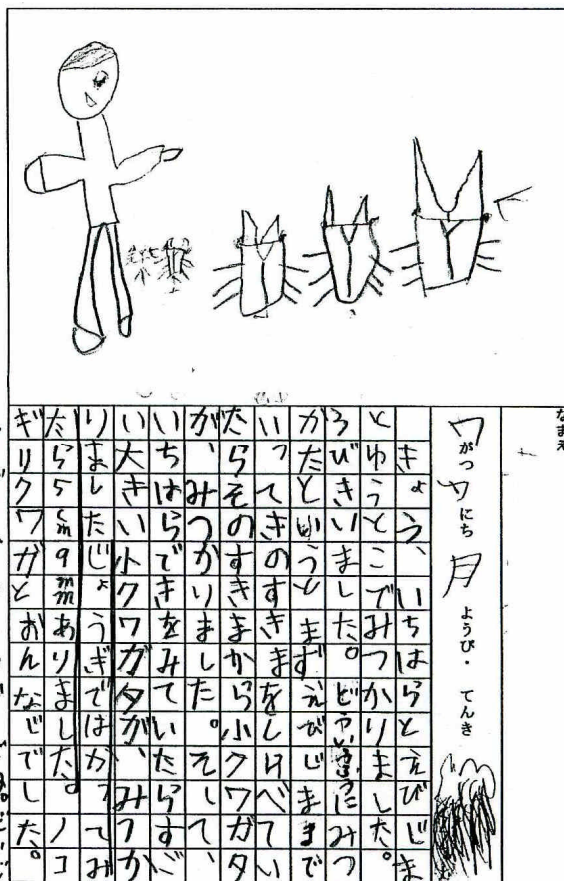 なまえ
7がつ7にち月ようび・てんき
きょう、いちはらとえびじま
とゆうとこでみつかりました。
3びきいました。どういうふうにみつ
かたとゆうとまずえびじままで
いってきのすきまをしらべてい
たらそのすきまから小クワガタ
が、みつかりました。そして、
いちはらできをみていたらすご
い大きい小クワガタが、みつか
りましたじょうぎではかってみ
たら5cm9mmありました。ノコ
ギリクワガとおんなじでした。